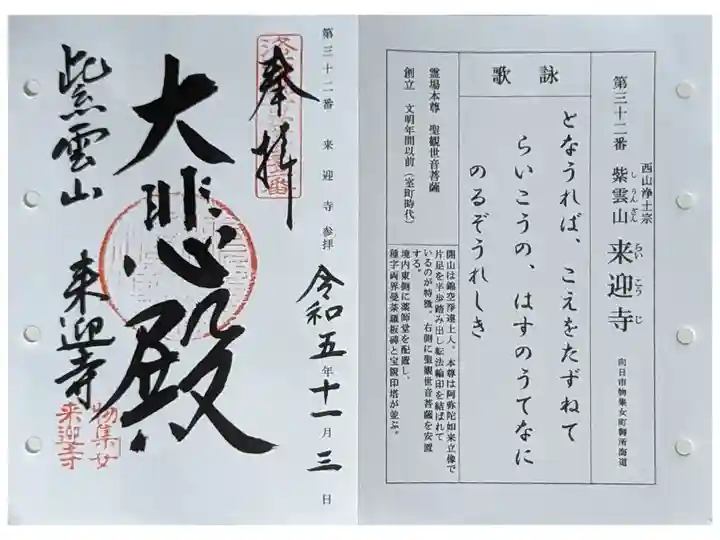 第三十二番 来迎寺 参拝
奉拝
大悲殿
紫雲山 来迎寺
令和五年十一月三日
物集女
来迎寺
西山浄土宗
第三十二番 紫雲山 来迎寺
しうんざん らいこうじ
向日市物集女町御所海道
詠歌
となうれば、こえをたずねて
らいこうの、はすのうてなに
のるぞうれしき
霊場本尊 聖観世音菩薩
創立 文明年間以前(室町時代)
開山は錦空淨蓮上人。本尊は阿弥陀如来立像で
片足を半歩踏み出し転法輪印を結ばれて
いるのが特徴。右側に聖観世音菩薩を安置
する。
境内東側に薬師堂を配置し、
種字両界曼荼羅板碑と宝篋印塔が並ぶ。